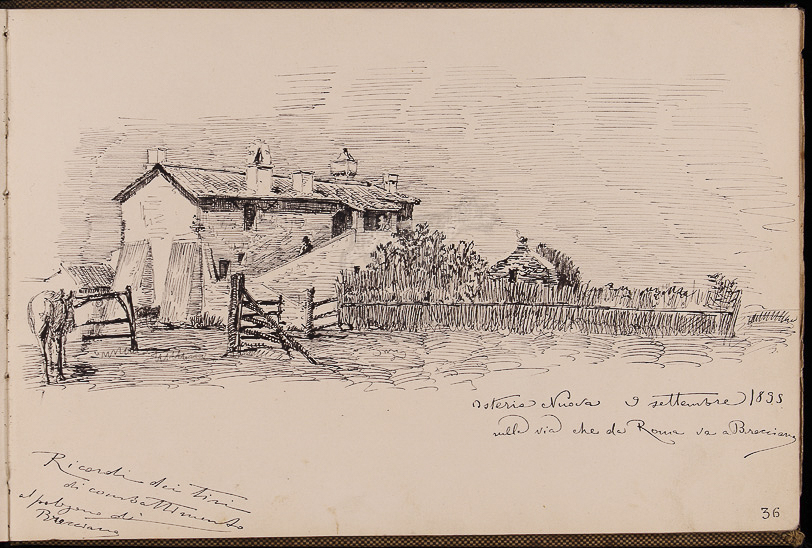 Osteria Nuova 9 settembre 1895
sulla via che da Roma va a Bracciano
Ricordi dei tiri
di combattimento
al poligono di
Bracciano
36